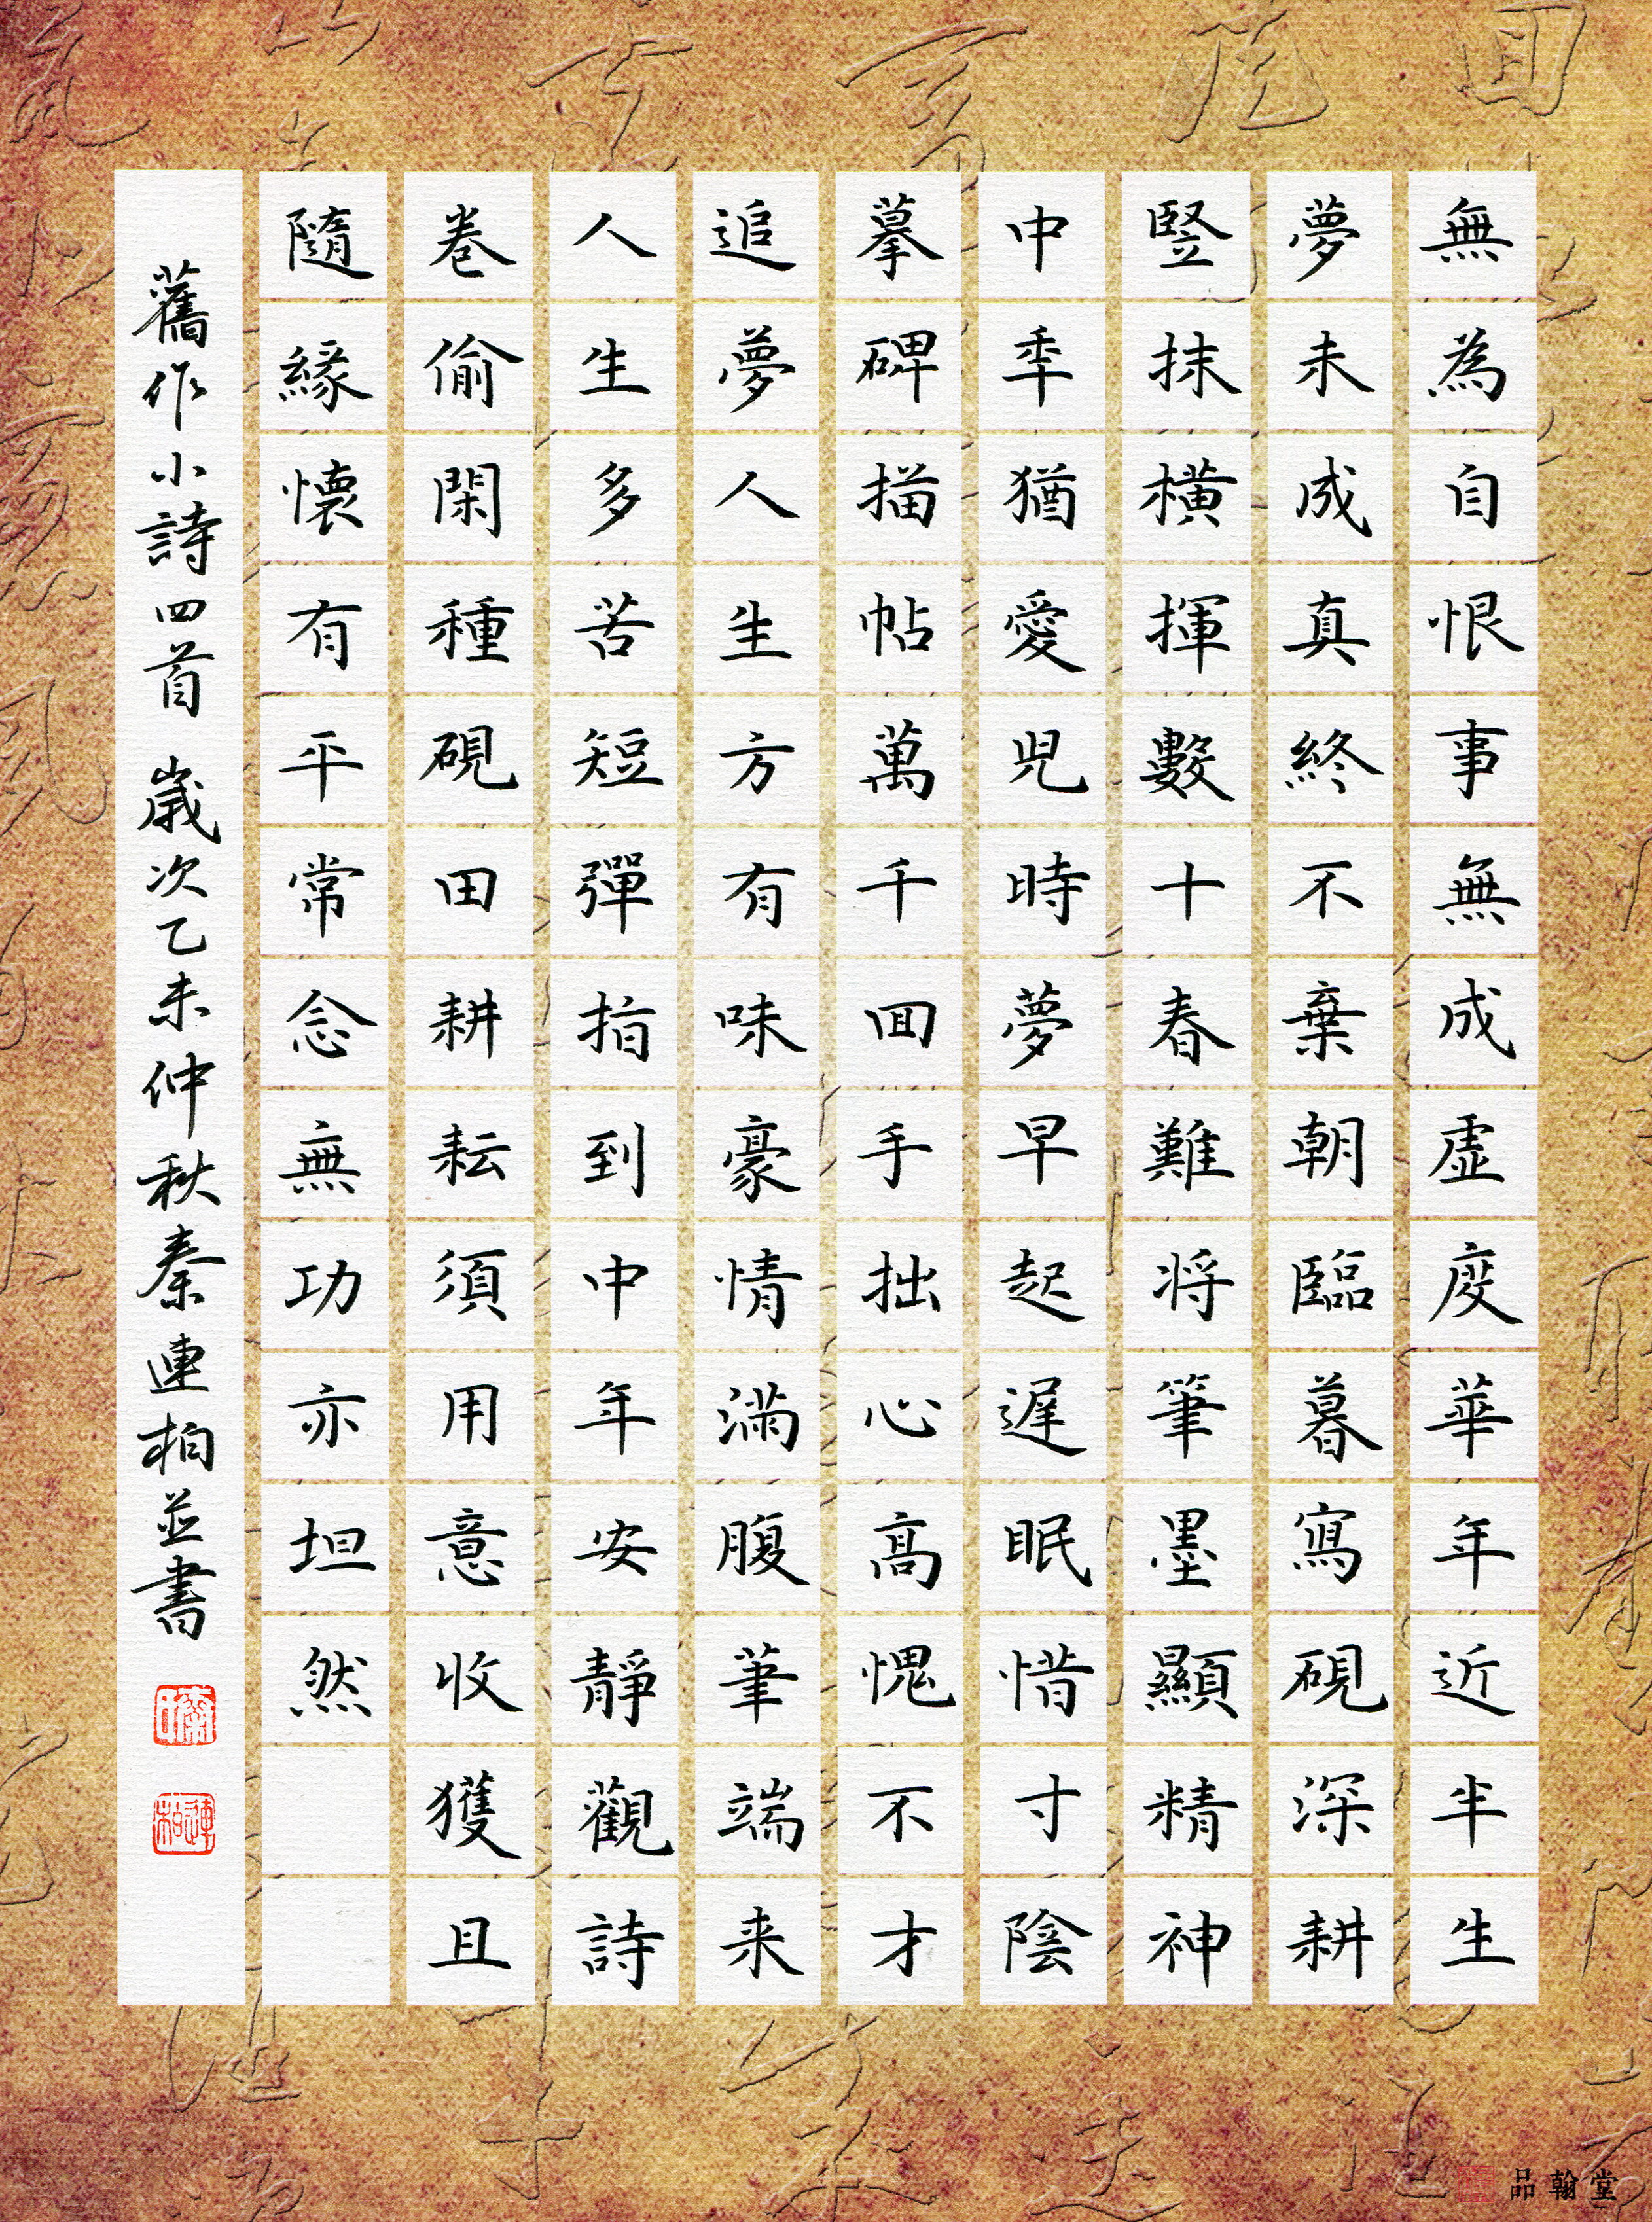 無為自恨事無成虛度華年近半生
夢未成真終不棄朝臨暮寫硯深耕
竪抹橫揮數十春難將筆墨顯精神
中秊猶愛兒時夢早起遲眠惜寸陰
摹碑描帖萬千回手拙心高愧不才
追夢人生方有味豪情滿腹筆端来
人生多苦短彈指到中年安靜觀詩
卷偷閑種硯田耕耘須用意收獲且
隨緣懷有平常念無功亦坦然
舊作小詩四首 歲次乙未仲秋秦連柏並書
連柏
品翰堂